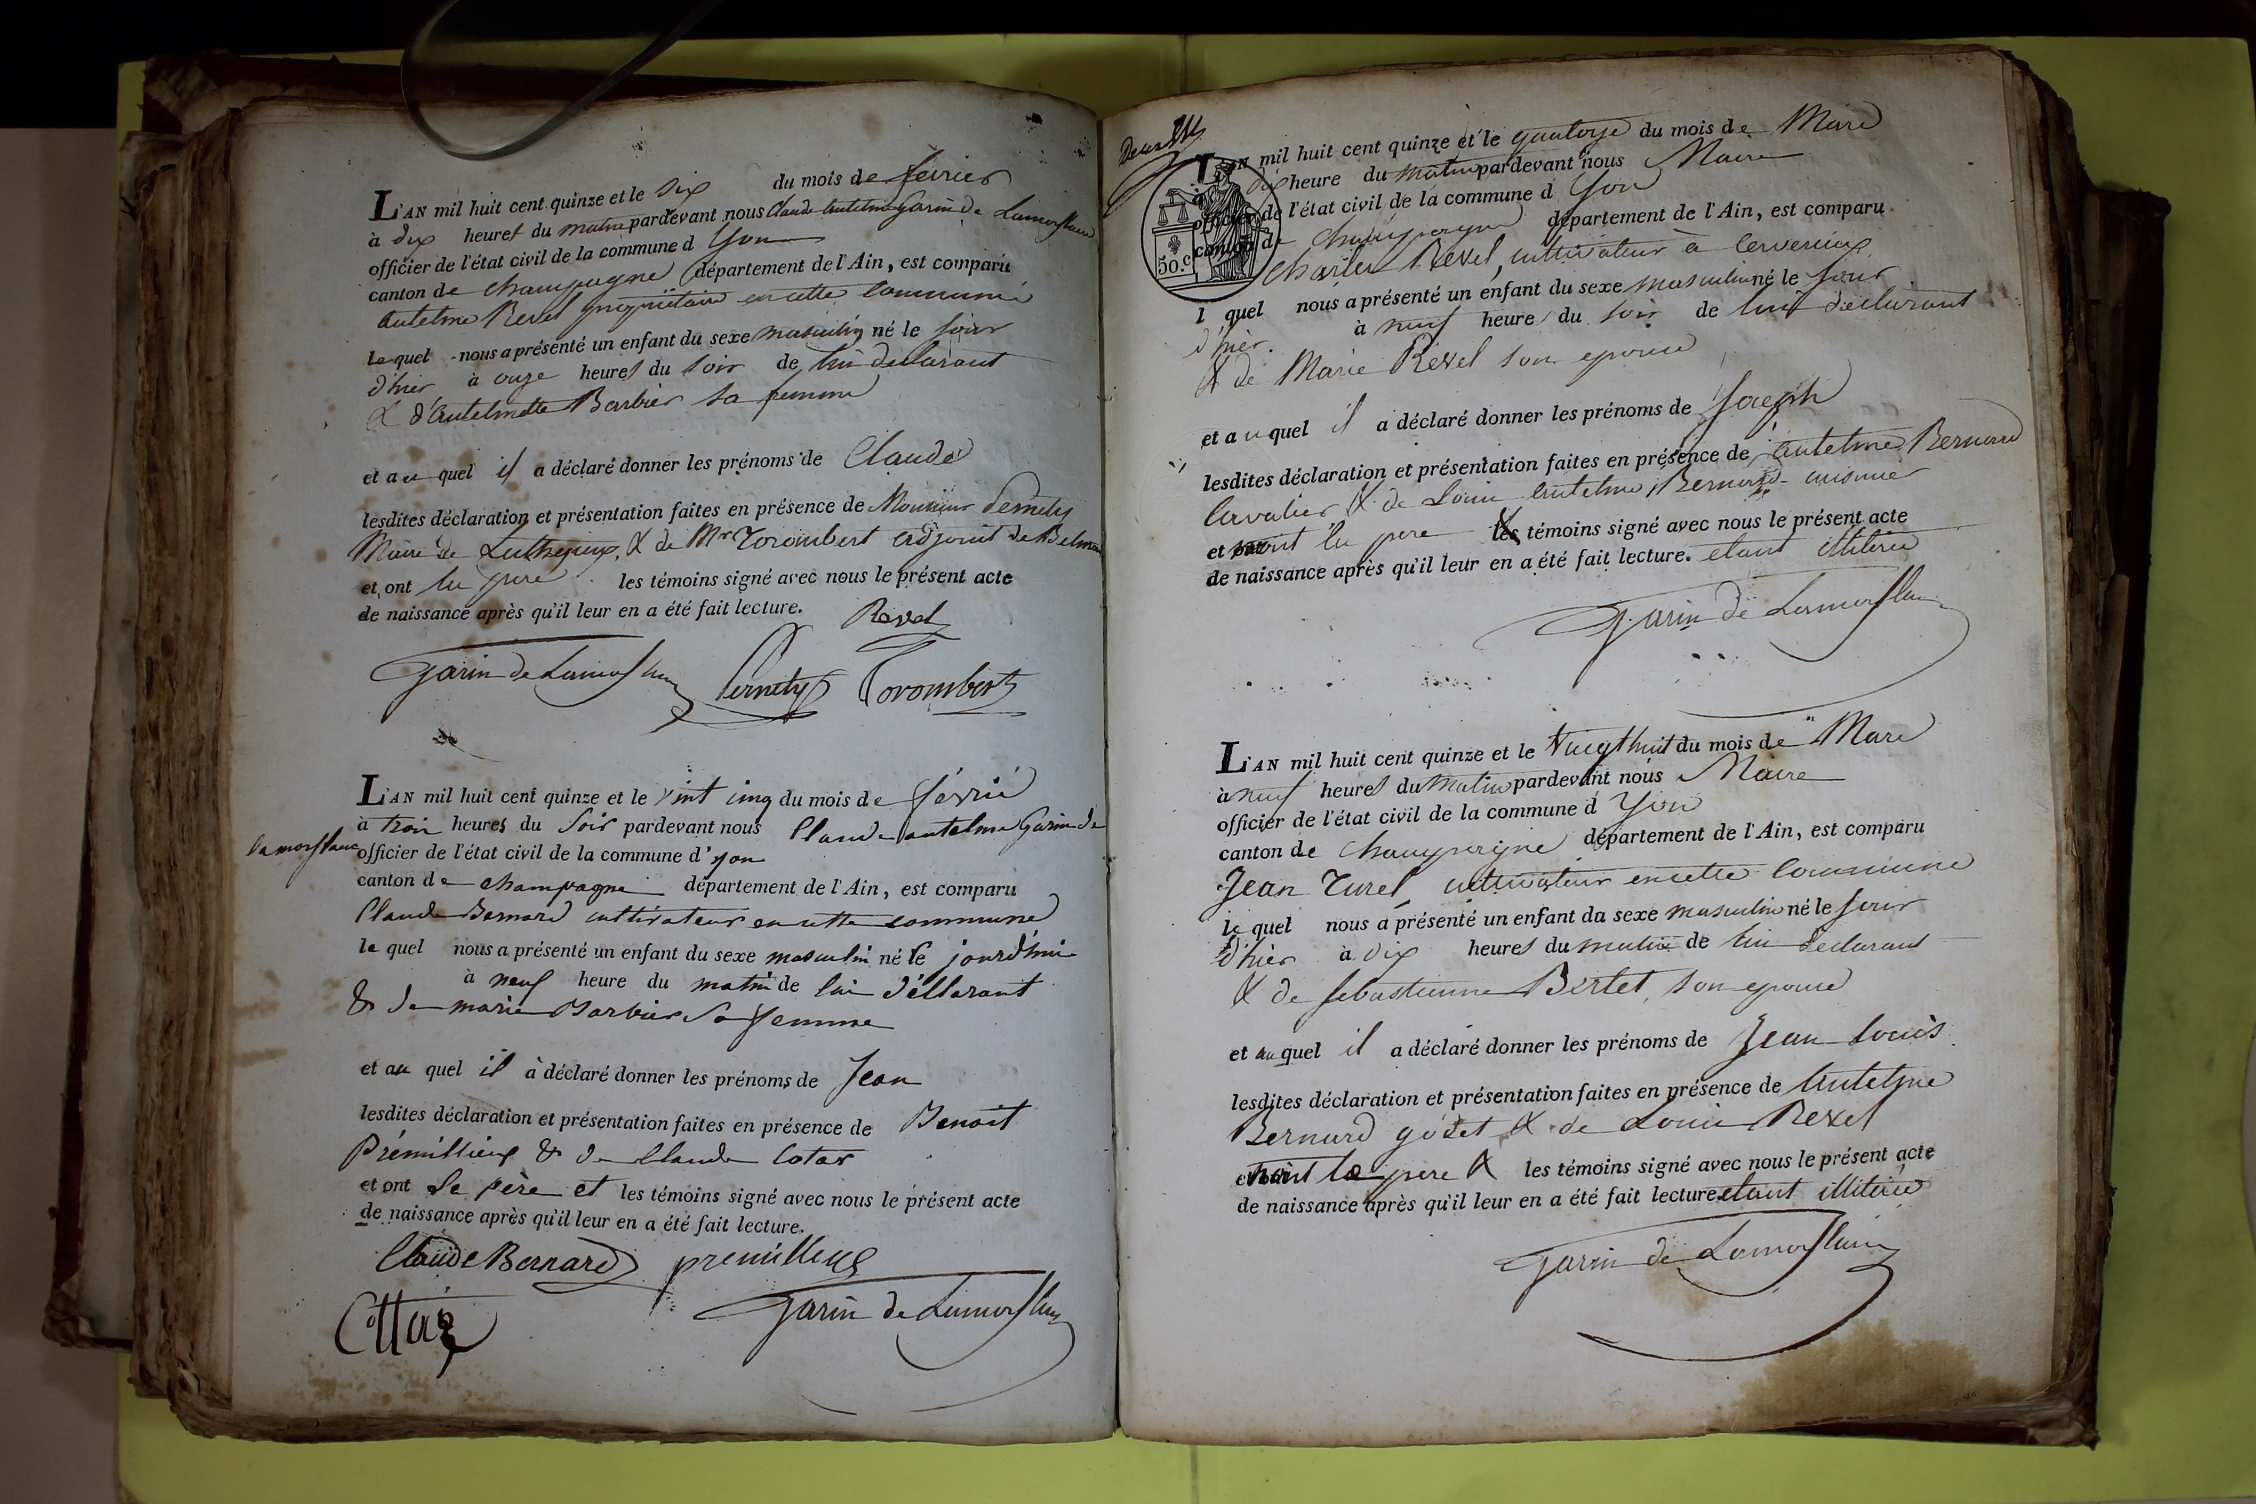 L'AN mil huit cent quinze et le dix du mois de fevrier
à dix heures du matin pardevant nous Claude Antelme Garin de Lamorflanc
officier de l'état civil de la commune d Yon
canton de Champagne département de l'Ain, est comparu
Antelme Revel propriétaire en cette commune
lequel nous a présenté un enfant du sexe masculin né le jour
d'hier à onze heures du soir de lui declarant
& d'Antelmette Barbier sa femme
et au quel il a déclaré donner les prénoms de Claude
lesdites déclaration et présentation faites en présence de Monsieur Pernety
Maire de Luthezieux, & de Mr Torombert adjoint de Belmon
et ont lu pere les témoins signé avec nous le présent acte
de naissance après qu'il leur en a été fait lecture. Revel
Garin de Lamorflanc Pernety Torombert
L'AN mil huit cent quinze et le vint cinq du mois de févrié
à trois heures du Soir pardevant nous Claude antelme Garin de
lamorflanc officier de l'état civil de la commune d'yon
canton de champagne département de l'Ain, est comparu
Claude Bernard cultivateur en cette commune
le quel nous a présenté un enfant du sexe masculin né le jourd'hui
à neuf heure du matin de lui déllarant
& de marie Barbier Sa femme
et au quel il à déclaré donner les prénoms de Jean
lesdites déclaration et présentation faites en présence de Benoit
Prémillieux & de Claude Cotar
et ont le père et les témoins signé avec nous le présent acte
de naissance après qu'il leur en a été fait lecture.
Claude Bernard premilleux
Garin de Lamorflanc
Cottaz
50.c
L'AN mil huit cent quinze et le quatorze du mois de Mars
dix heure du matin pardevant nous Maire
officier de l'état civil de la commune d Yon
canton de Champagne département de l'Ain, est comparu
Charles Revel, cultivateur à Cerverieux
l quel nous a présenté un enfant du sexe masculin né le jour
d'hier. à neuf heure du soir de lui declarant
& de Marie Revel son epouse
et au quel il a déclaré donner les prénoms de Joseph
lesdites déclaration et présentation faites en présence de Antelme Bernard
Cavalier & de Louis Antelme Bernard cuisinier
et nont lu pere & les témoins signé avec nous le présent acte
de naissance après qu'il leur en a été fait lecture. etant illitéré
Garin de Lamorflanc
L'AN mil huit cent quinze et le Vingthuit du mois de Mars
à neuf heures du Matin pardevant nous Maire
officier de l'état civil de la commune d Yon
canton de Champagne département de l'Ain, est comparu
Jean Turel cultivateur en cette commune
le quel nous a présenté un enfant du sexe masculin né le jour
d'hier à dix heures du matin de lui declarant
& de Sebastienne Bertet, son epouse
et auquel il a déclaré donner les prénoms de Jean Louis
lesdites déclaration et présentation faites en présence de Antelme
Bernard godet & de Louis Revel
et nont le pere & les témoins signé avec nous le présent acte
de naissance après qu'il leur en a été fait lecture etant illitéré
Garin de Lamorflanc